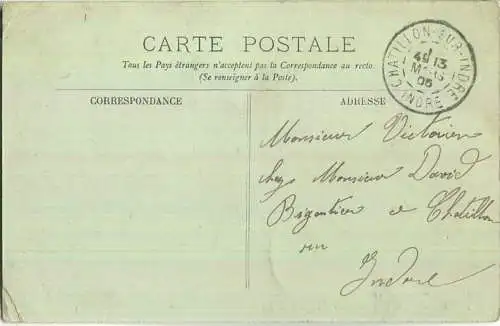 CARTE POSTALE
Tous les Pays étrangers n'acceptent pas la Correspondance au recto.
(Se renseigner à la Poste).
CHATILLON-SUR-INDRE
13
MARS
05
INDRE
CORRESPONDANCE
ADRESSE
Monsieur Victorien
chez Monsieur David
à Chatillon
sur
Indre